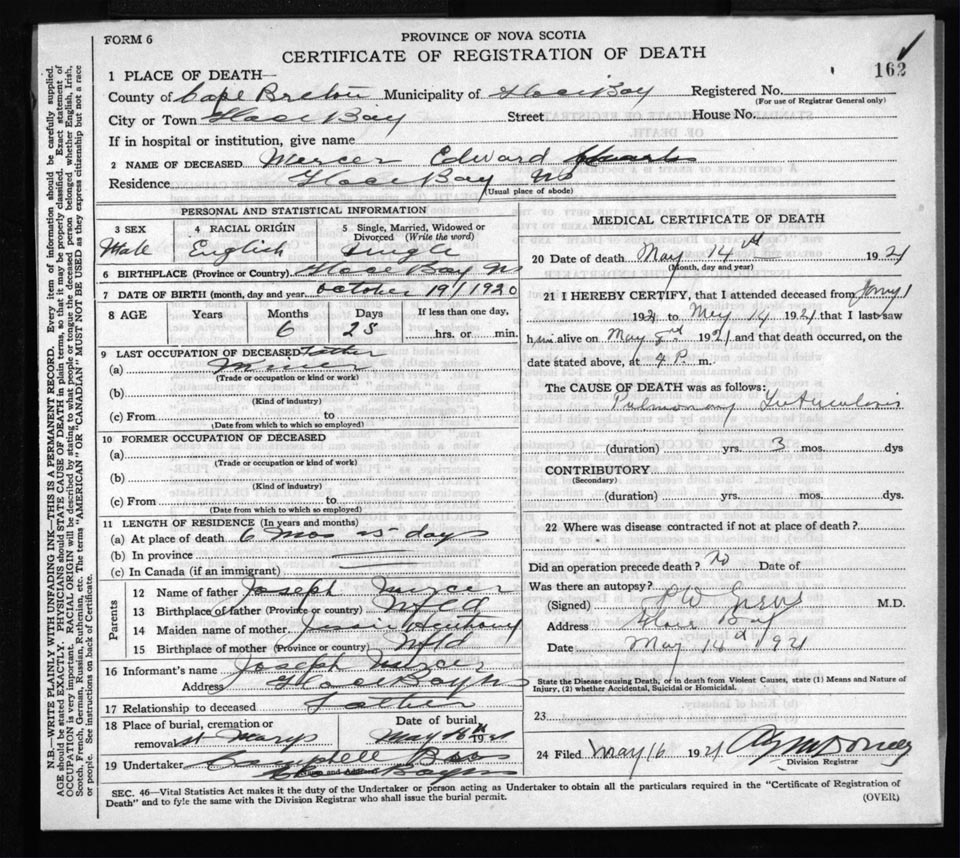 FORM 6
PROVINCE OF NOVA SCOTIA
CERTIFICATE OF REGISTRATION OF DEATH
162
1 PLACE OF DEATH—
County of Cape Breton Municipality of Glace Bay Registered No.
(For use of Registrar General only)
City or Town Glace Bay Street House No.
If in hospital or institution, give name
2 NAME OF DECEASED Mercer Edward
Residence Glace Bay NS
(Usual place of abode)
PERSONAL AND STATISTICAL INFORMATION
3 SEX 4 RACIAL ORIGIN 5 Single, Married, Widowed or Divorced (Write the word)
Male English Single
6 BIRTHPLACE (Province or Country) Glace Bay NS
7 DATE OF BIRTH (month, day and year) October 19/1920
8 AGE Years Months Days If less than one day,
6 25 hrs. or min.
9 LAST OCCUPATION OF DECEASED Father
(a) Miner
(Trade or occupation or kind or work)
(b)
(Kind of industry)
(c) From to
(Date from which to which so employed)
10 FORMER OCCUPATION OF DECEASED
(a)
(Trade or occupation or kind of work)
(b)
(Kind of industry)
(c) From to
(Date from which to which so employed)
11 LENGTH OF RESIDENCE (In years and months)
(a) At place of death 6 mos 25 days
(b) In province
(c) In Canada (if an immigrant)
Parents
12 Name of father Joseph Mercer
13 Birthplace of father (Province or country) Nfld
14 Maiden name of mother Jessie Anthony
15 Birthplace of mother (Province or country) Nfld
16 Informant's name Joseph Mercer
Address Glace Bay NS
17 Relationship to deceased Father
18 Place of burial, cremation or removal St Marys Date of burial May 16th 1921
19 Undertaker Campbell Bros
Glace Bay NS
MEDICAL CERTIFICATE OF DEATH
20 Date of death May 14th 1921
(Month, day and year)
21 I HEREBY CERTIFY, that I attended deceased from
1921 to May 14 1921 that I last saw
him alive on May 1921 and that death occurred, on the
date stated above, at 4 P. m.
The CAUSE OF DEATH was as follows:
Pulmonary Tuberculosis
(duration) yrs. 3 mos. dys
CONTRIBUTORY
(Secondary)
(duration) yrs. mos. dys.
22 Where was disease contracted if not at place of death?
Did an operation precede death? No Date of
Was there an autopsy?
(Signed) M.D.
Address Glace Bay
Date May 14th 1921
State the Disease causing Death, or in death from Violent Causes, state (1) Means and Nature of
Injury, (2) whether Accidental, Suicidal or Homicidal.
23
24 Filed May 16 1921
Division Registrar
SEC. 46—Vital Statistics Act makes it the duty of the Undertaker or person acting as Undertaker to obtain all the particulars required in the "Certificate of Registration of
Death" and to fyle the same with the Division Registrar who shall issue the burial permit. (OVER)
N.B.—WRITE PLAINLY WITH UNFADING INK—THIS IS A PERMANENT RECORD. Every item of information should be carefully supplied.
AGE should be stated EXACTLY. PHYSICIANS should STATE CAUSE OF DEATH in plain terms, so that it may be properly classified. Exact statement of
OCCUPATION is very important. RACIAL ORIGIN will be described by stating to what people or tongue the deceased person belonged whether English, Irish,
Scotch, French, German, Russian, Ruthenian, etc. The terms "AMERICAN" OR "CANADIAN" MUST NOT BE USED as they express citizenship but not a race
or people. See instructions on back of Certificate.